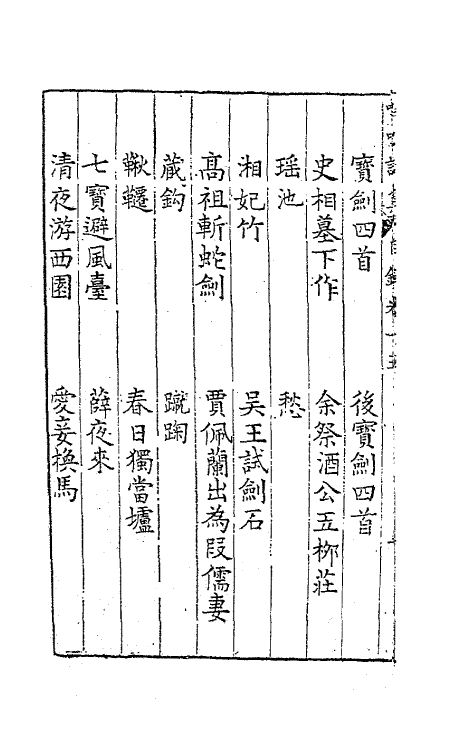 寶劍四首
後寶劍四首
史相墓下作
余祭酒公五桺莊
瑶池
愁
湘妃竹
吴王試劍石
髙祖斬蛇劍
賈佩蘭出為叚儒妻
藏鈎
蹴踘
鞦韆
春日獨當壚
七寶避風臺
薛夜來
清夜游西園
愛妾換馬